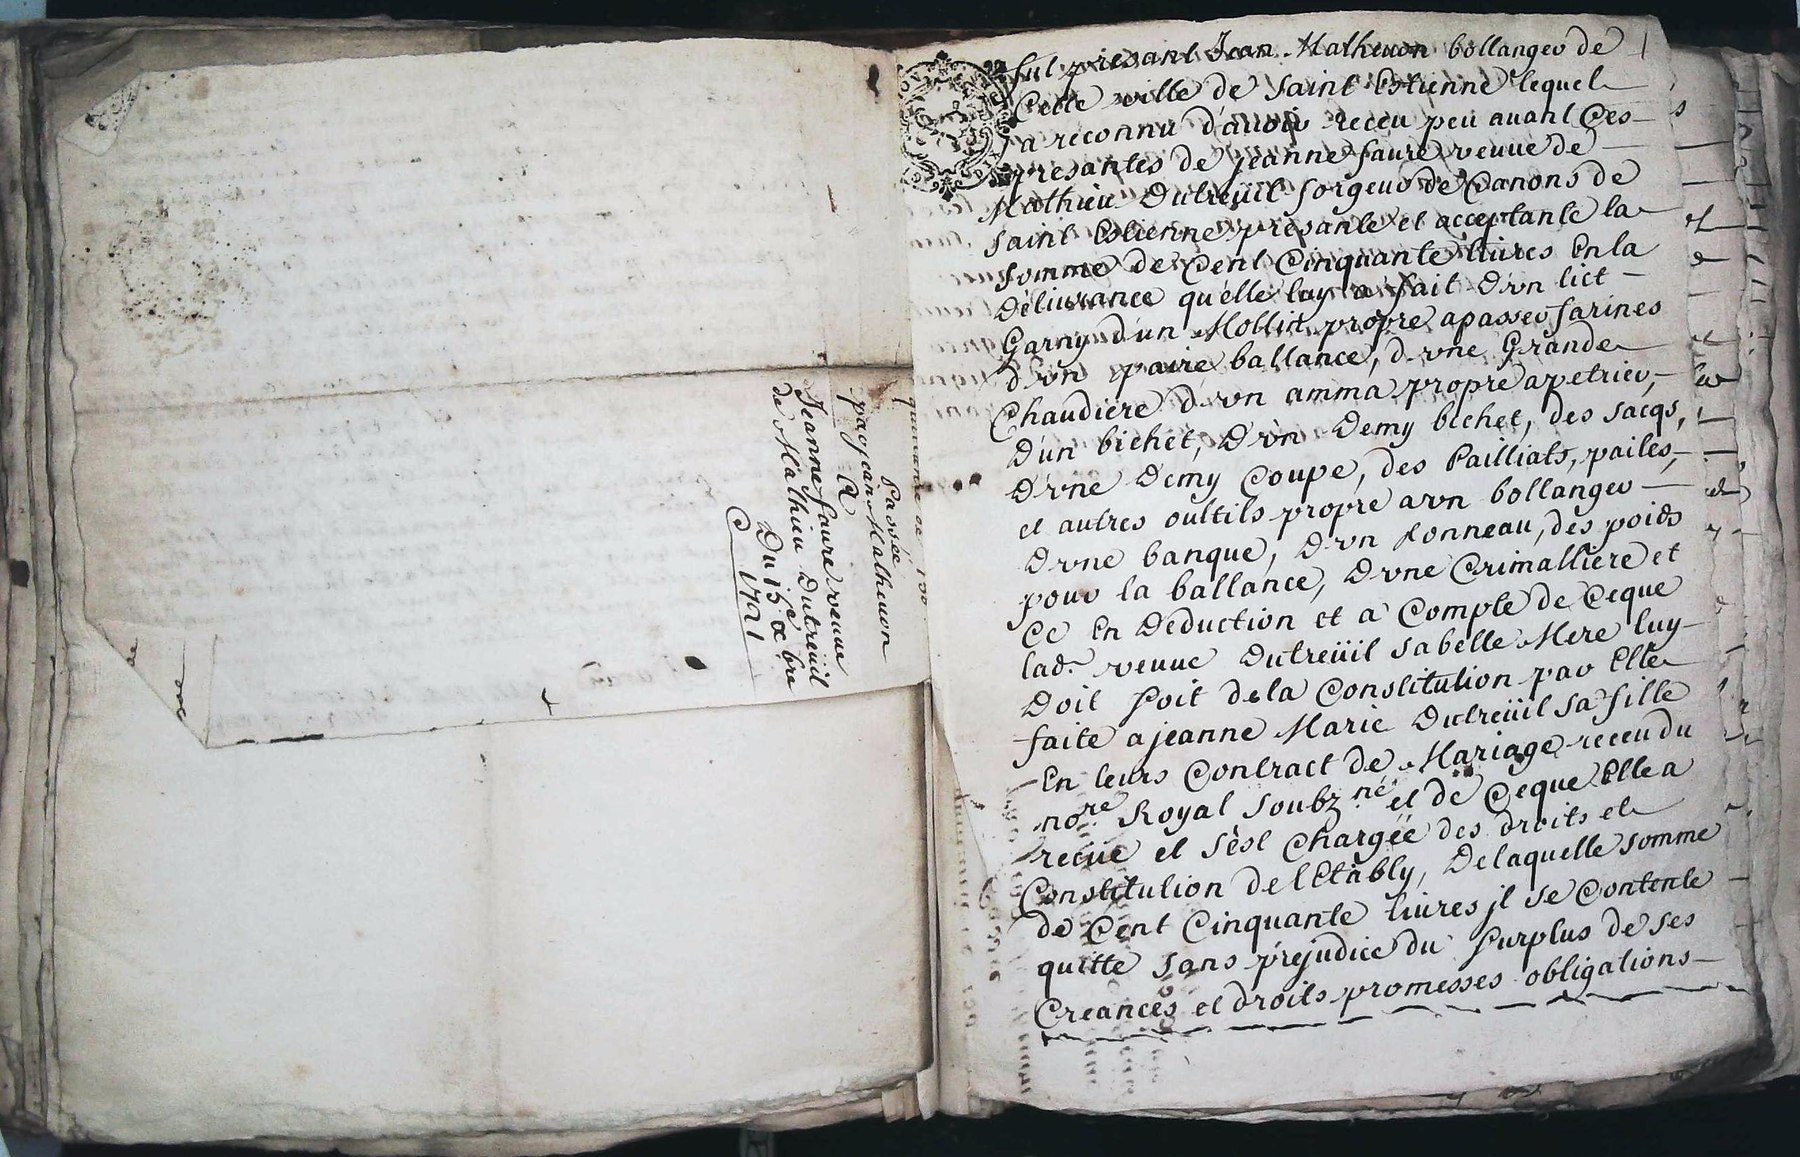 quittance de 150
Passée
par jean Matheuon
A
Jeanne faure veuue
de Mathieu Dutreüil
Du 15e xbre
1721
fut présant Jean Matheuon bollanger de
Cette ville de Saint Estienne lequel
a reconnu d'auoir receu peu auant Ces
présantes de jeanne faure veuue de
Mathieu Dutreüil forgeur de Canons de
Saint Estienne présante et acceptante la
somme de Cent Cinquante liures En la
Déliurance qu'elle luy a fait D'vn lict
Garny d'un Mollin propre apasser farines
d'vn paire ballance, d'vne Grande
Chaudiere d'vn amma propre apetrier,
D'un bichet, D'vn Demy bichet, des sacqs,
D'vne Demy Coupe, des Pailliats, pailes,
et autres oultils propre avn bollanger
D'vne banque, D'vn tonneau, des poids
pour la ballance, D'vne Crimalliere et
Ce En Deduction et a Compte de Ceque
lade veuue Dutreüil sabelle Mere luy
Doit soit dela Constitution par Elle
faite ajeanne Marie Dutreüil sa fille
En leurs Contract de Mariage receu du
nore Royal soubzné et de Ceque Elle a
reçüe et s'est Chargée des droits et
Constitution de l'Etably, Delaquelle somme
de Cent Cinquante liures jl se Contente
quitte sans préjudice du Surplus de ses
Creances et droits promesses obligations